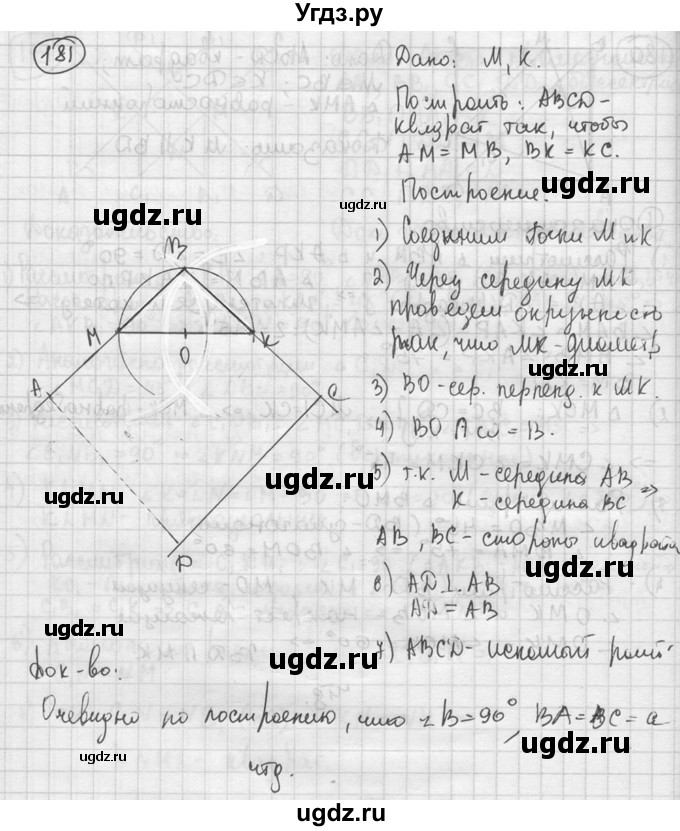 Угдз.ру
181
Дано: М, К.
Построить: ABCD-
квадрат так, чтобы
AM = MB, BK = KC.
Построение:
1) Соединим точки М и К
2) Через середину МК
проведем окружность
так, что МК-диаметр
3) ВО-сер. перпенд. к МК.
4) BO ∩ ω = B.
5) т.к. М-середина АВ =>
К-середина ВС
АВ, ВС-стороны квадрата
6) AD ⊥ AB
AD = AB
7) ABCD-искомый
B
M
O
K
A
C
D
ugdz.ru
ugdz.ru
ugdz.ru
ugdz.ru
ugdz.ru
ugdz.ru
ugdz.ru
ugdz.ru
ugdz.ru
ugdz.ru
ugdz.ru
Док-во:
Очевидно по построению, что ∠B=90°, BA=BC=a
чтд.
Угдз.ру